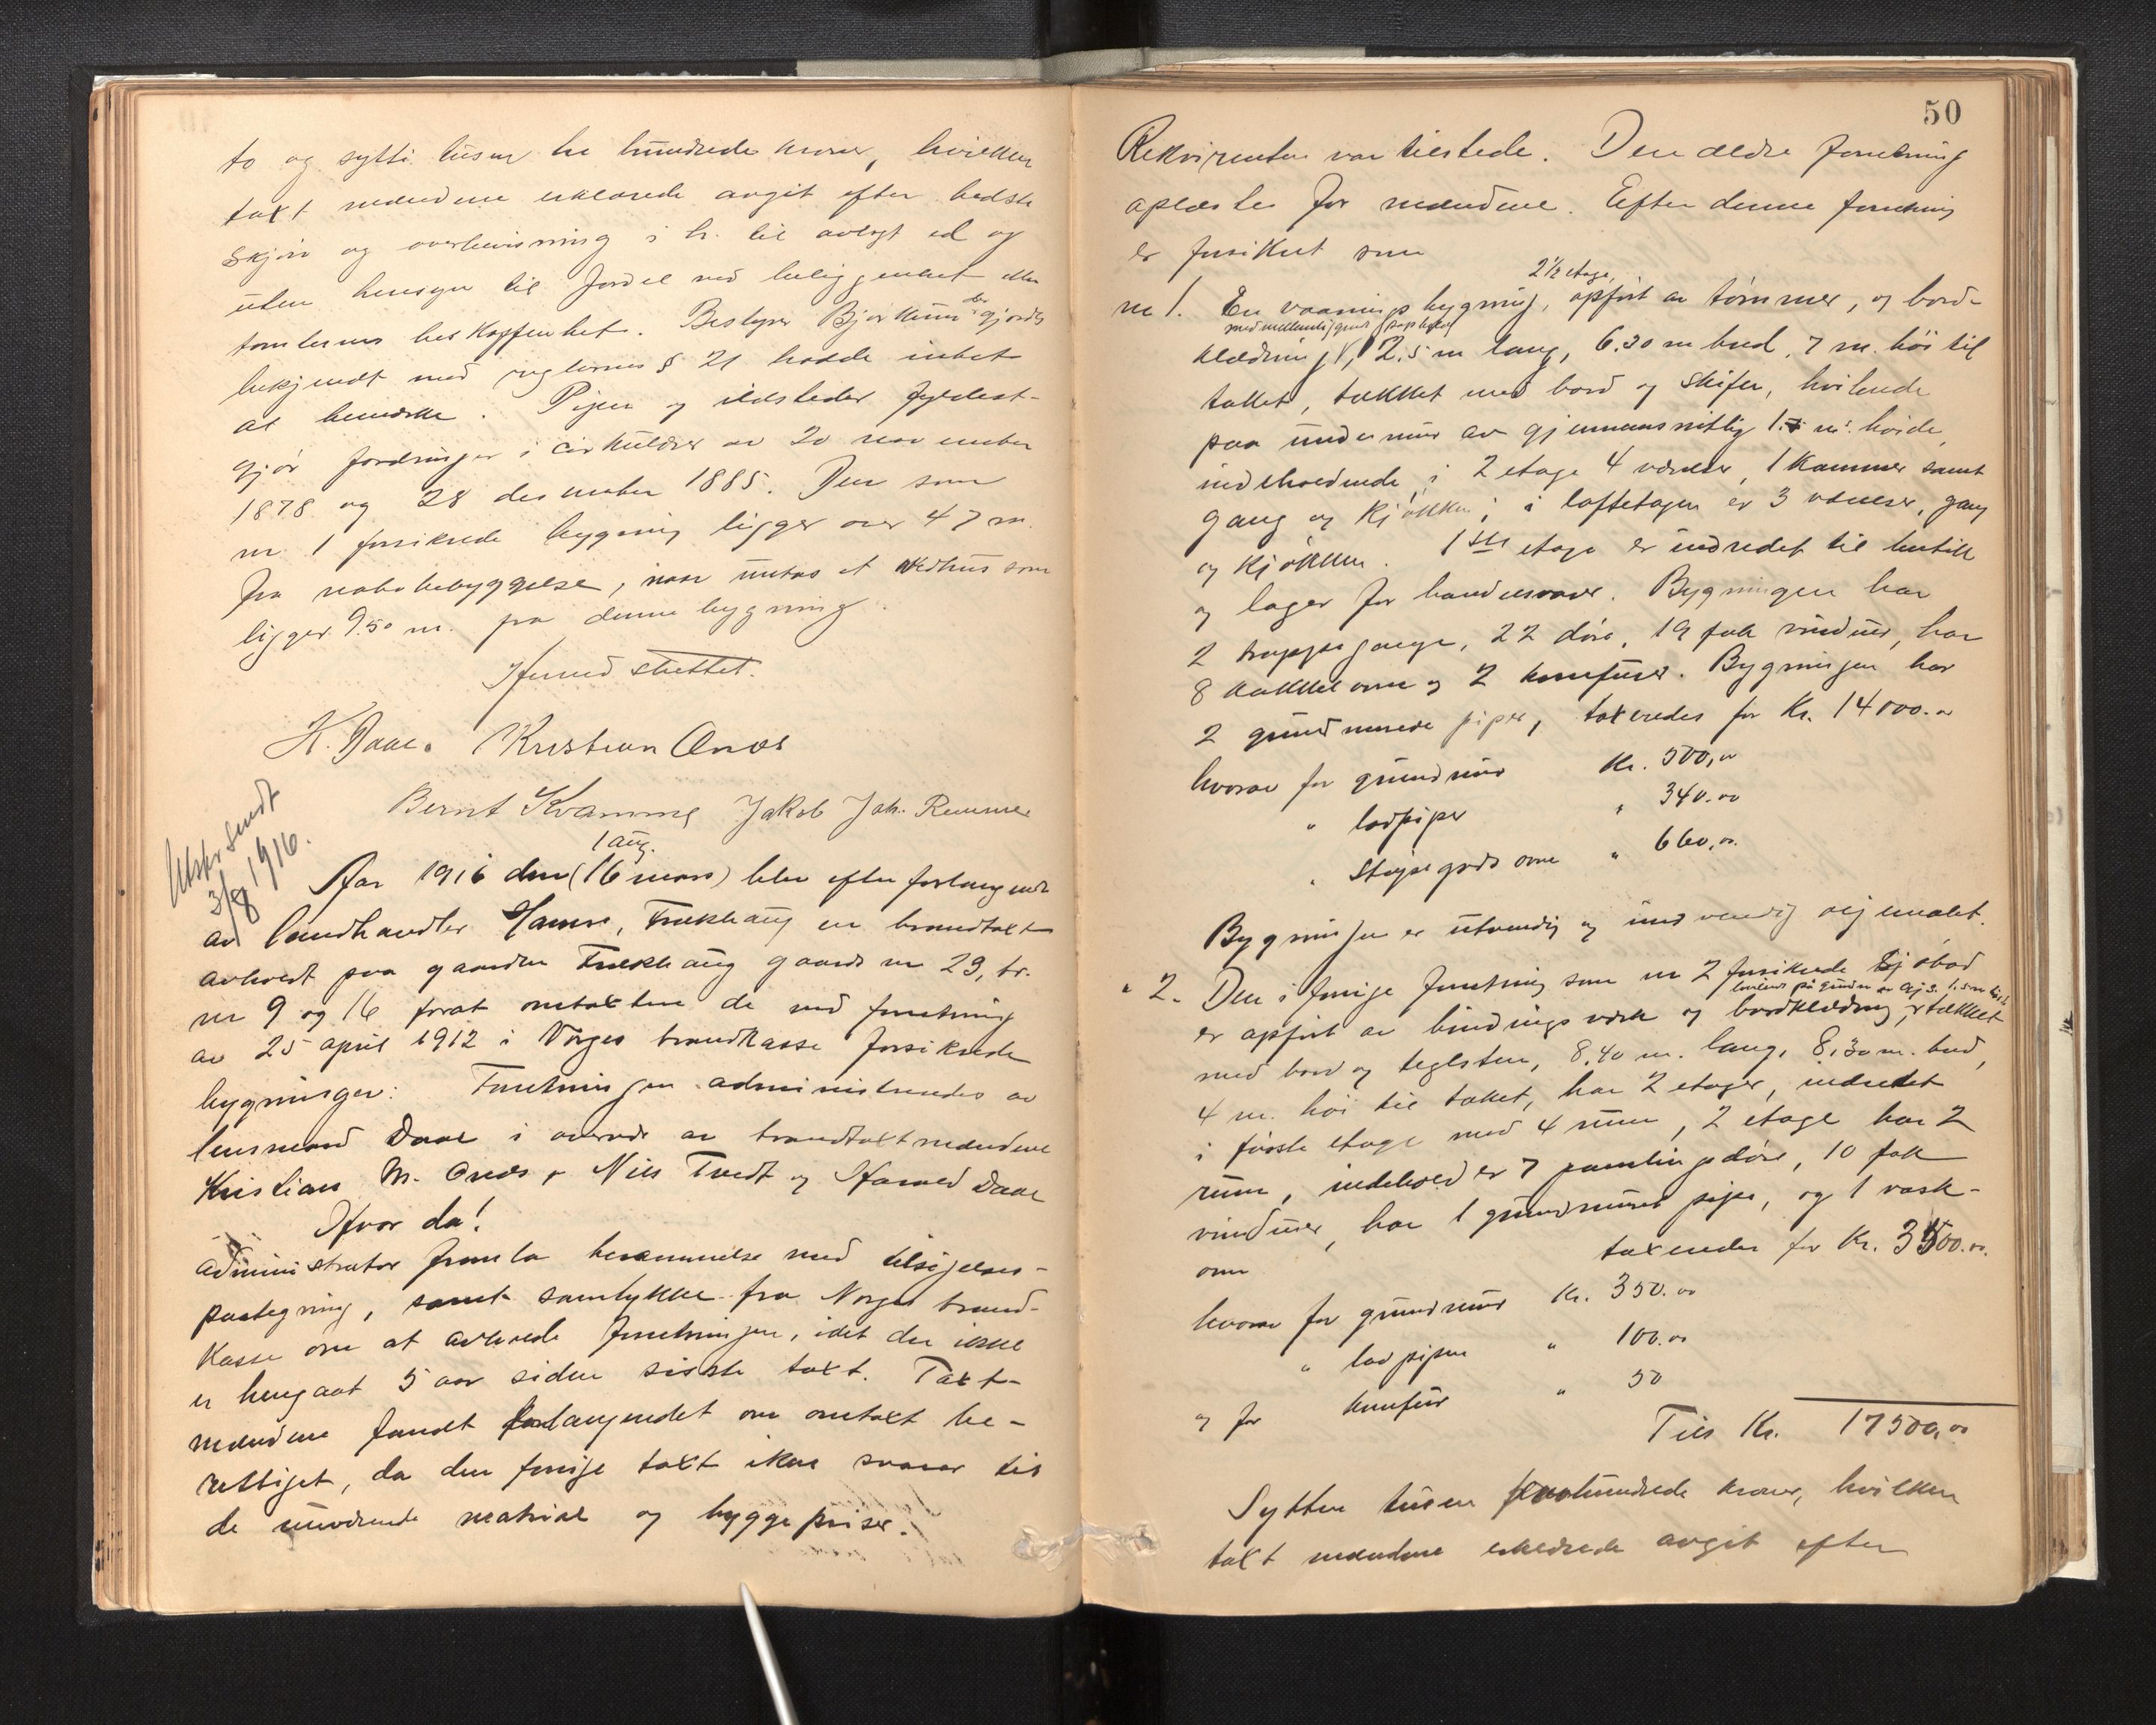 to og sytti tusen tre hundrede kroner, hvilken
takt mændene erklærede avgit efter bedste
skjøn og overbevisning i h. til avlagt ed og
uten hensyn til fordel ved beliggenhet eller
tomternes beskaffenhet. Bestyrer Bjørkum der gjordes
bekjendt med reglernes § 21 hadde intet
at bemerke. Piper og ildsteder fyldest-
gjør fordringer i cirkulærer av 20 november
1878 og 28 desember 1885. Den som
nr 1 forsikrede bygning ligger over 47 m.
fra nabobebyggelse, naar untas et vedhus som
ligger 9.50 m. fra denne bygning.
Hermed sluttet.
K. Daae. Kristian Onæs
Bernt Kvamme Jakob Joh. Remmen
Utskr sendt
3/8 1916.
1 aug.
Aar 1916 den (16 mars) blev efter forlangende
av landhandler Hamre, Frekhaug en brandtakt
avholdt paa gaarden Frekhaug gaards nr 23, br.
nr 9 og 16 forat omtaktere de ved forretning
av 25 april 1912 i Norges brandkasse forsikrede
bygninger: Forretningen administreredes av
lensmand Daae i overvær av brandtaktmændene
Kristian M. Onæs, Nils Tvedt og Harald Daae
Hvor da!
Administrator fremla berammelse med tilsigelses-
paategning, samt samtykke fra Norges brand-
kasse om at avholde forretningen, idet der ikke
er hengaat 5 aar siden sidste takt. Takt-
mændene fandt forlangendet om omtakt be-
rettiget, da den forrige takt ikke svarer til
de nuværende material og byggepriser.
50
Rekvirenten var tilstede. Den ældre forretning
oplæstes for mændene. Efter denne forretning
er forsikret som
2 1/2 etage,
nr 1. En vaaningsbygning, opført av tømmer, og bord-
med mellemliggende papbelag
klædning, 12.5 m lang, 6.30 m bred, 7 m. høi til
taket, tækket med bord og skifer, hvilende
paa undermur av gjennemsnitlig 1.5 m. høide,
indeholdende i 2 etage 4 værelser, 1 kammer samt
gang og kjøkken; i loftetagen er 3 værelser, gang
og kjøkken. 1ste etage er indredet til butik
og lager for handelsvarer. Bygningen har
2 trappegange, 22 døre, 19 fak vinduer, har
8 kakkelovne og 2 komfurer. Bygningen har
2 grundmurede piper, takseredes for Kr. 14000.00
hvorav for grundmur Kr. 500,00
" lodpiper " 340.00
" støpegods ovne " 660,00.
Bygningen er utvendig og indvendig oljemalet.
" 2. Den i forrige forretning som nr 2 forsikrede sjøbod
hvilende på grundm av gj.s. 1.5 m høide
er opført av bindingsverk og bordklædning, tækket
med bord og teglsten, 8.40 m. lang, 8.30 m. bred,
4 m. høi til taket, har 2 etager, indredet
i første etage med 4 rum, 2 etage har 2
rum, indeholder 7 panelingsdøre, 10 fak
vinduer, har 1 grundmuret pipe, og 1 vask-
ovn takseredes for Kr. 3500.00.
hvorav for grundmur Kr. 350.00
" lodpipen " 100.00
og for komfur " 50
Tils Kr. 17500,00
Sytten tusen femhundrede kroner, hvilken
takt mændene erklærede avgit efter